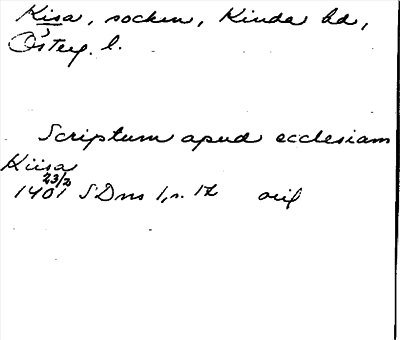 Kisa, socken, Kinda hd,
Österg. l.
Scriptum apud ecclesiam
Kiisa
23/2
1401 SDns 1, n. 12 orig